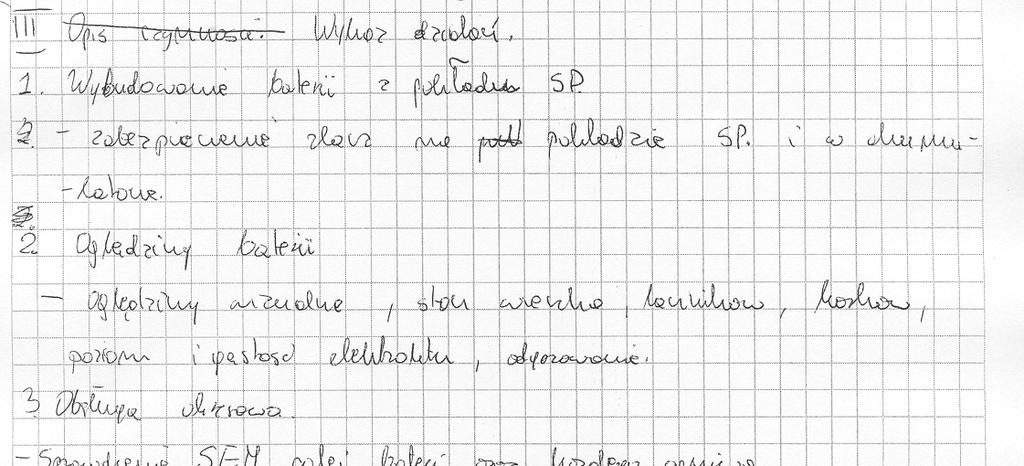 III Opis czynności. Wykaz działań.
1. Wybudowanie baterii z pokładu SP.
- zabezpieczenie złącz na pokładzie SP. i w akumu-
-latorze.
2. Oględziny baterii
- oględziny wizualne, stan wieczka, łączników, korków,
poziom i gęstość elektrolitu, odgazowanie.
3. Obsługa okresowa.
- Sprawdzenie SEM całej baterii oraz każdego